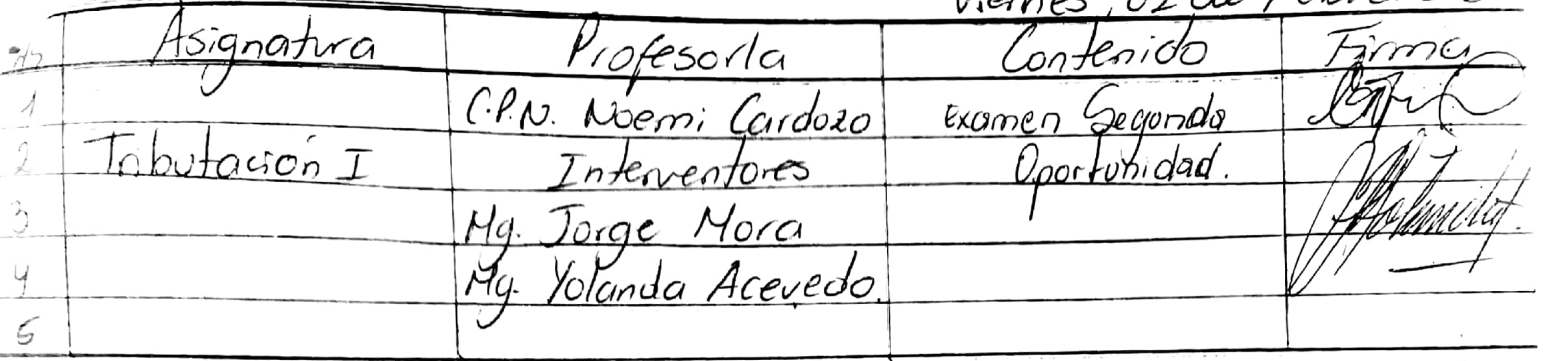 Viernes, 02 de Febrero
Asignatura Profesor/a Contenido Firma
1 C.P.N. Noemi Cardozo Examen Segunda
2 Tributación I Interventores Oportunidad.
3 Mg. Jorge Mora
4 Mg. Yolanda Acevedo.
5